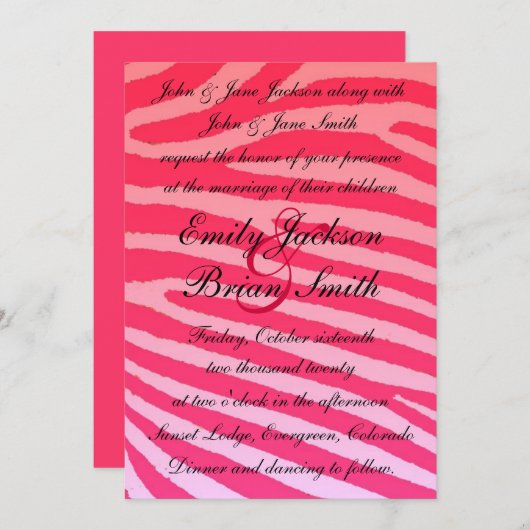 John & Jane Jackson along with
John & Jane Smith
request the honor of your presence
at the marriage of their children
Emily Jackson
&
Brian Smith
Friday, October sixteenth
two thousand twenty
at two o'clock in the afternoon
Sunset Lodge, Evergreen, Colorado
Dinner and dancing to follow.